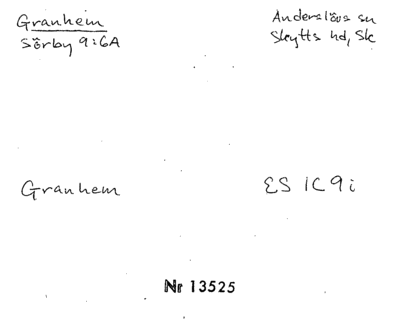 Granhem
Sörby 9:6A
Anderslövs sn
Skytts hd, Sk
Granhem
ES 1C 9i
Nr 13525